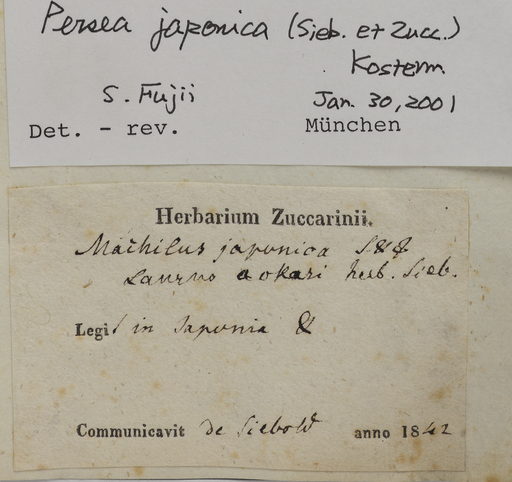 Persea japonica (Sieb. et Zucc.)
Kosterm
S. Fujii Jan. 30, 2001
Det. - rev. München
Herbarium Zuccarinii.
Machilus japonica S & Z
Laurus aokasi herb. Sieb.
Legit in Japonia
Communicavit de Siebold anno 1842